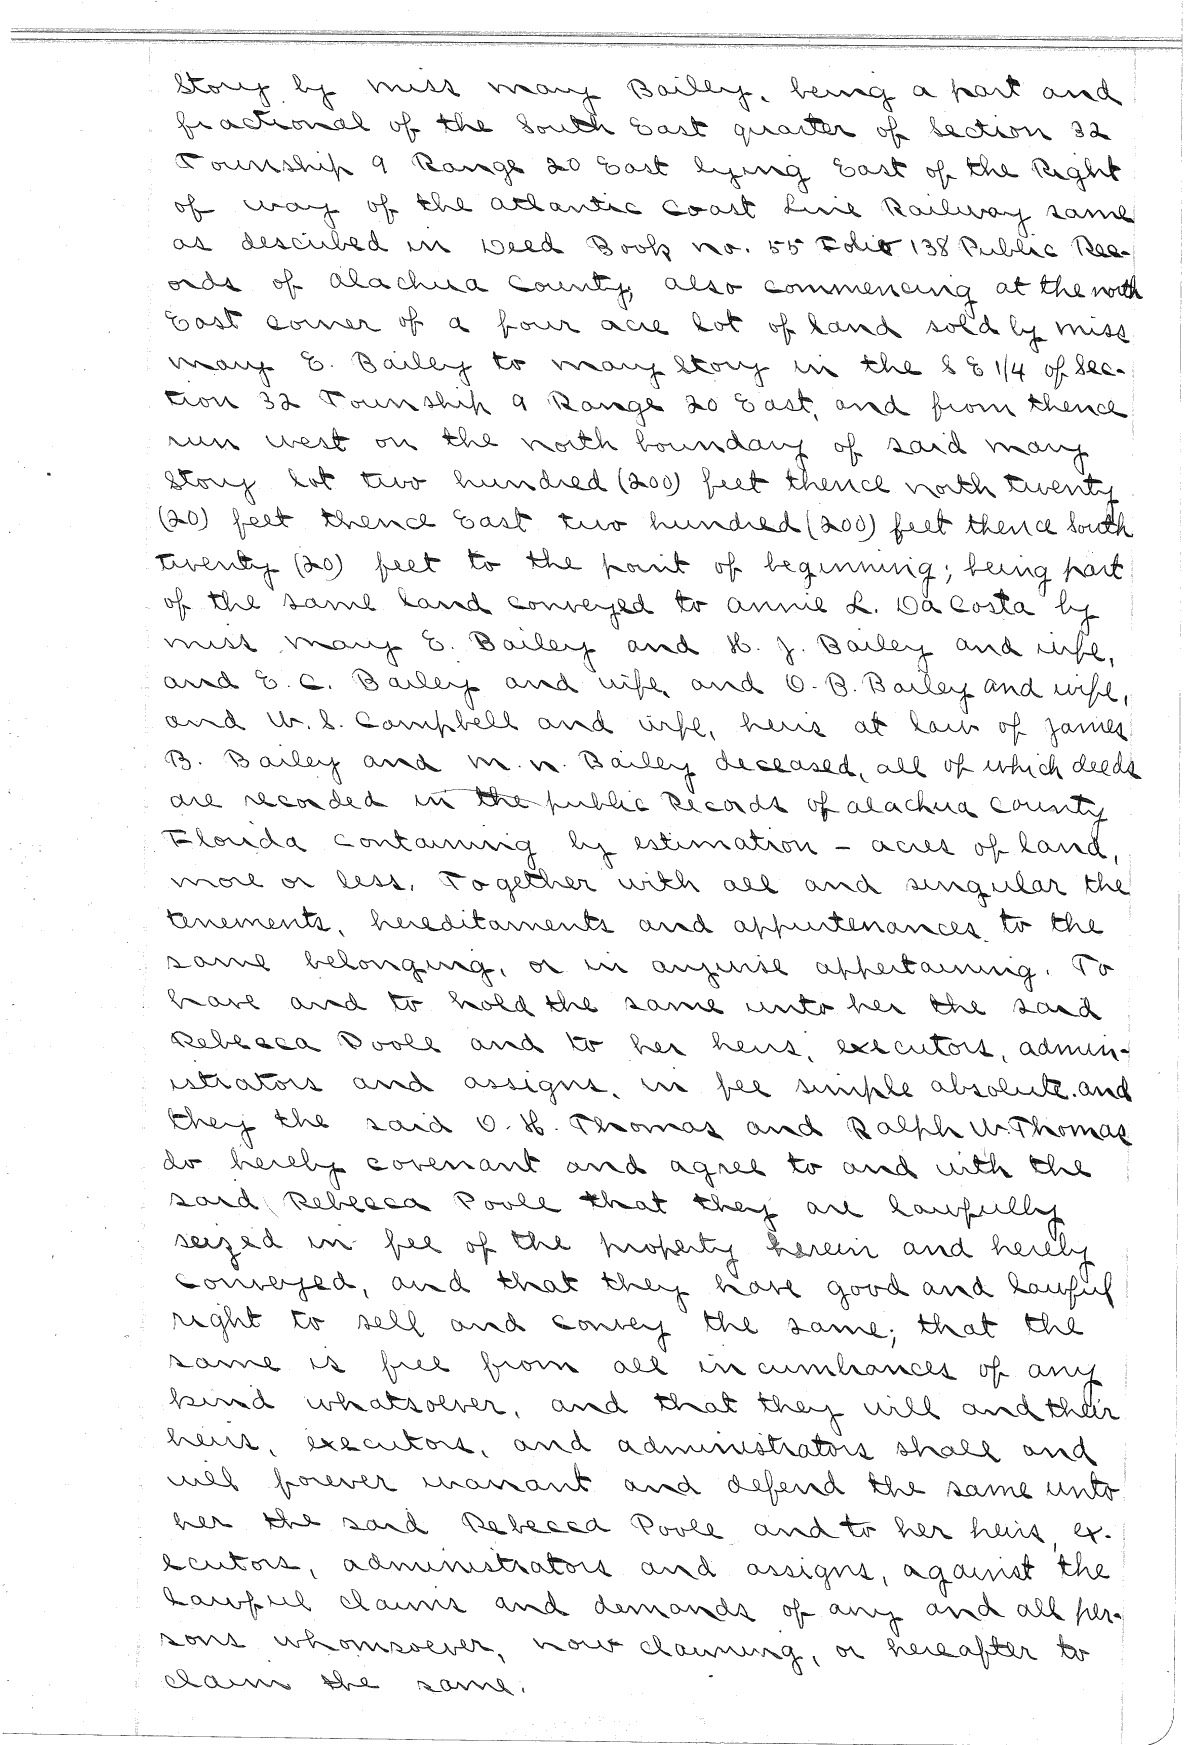 Story by Miss Mary Bailey, being a part and
fractional of the South East quarter of Section 32
Township 9 Range 20 East lying East of the Right
of way of the Atlantic Coast Line Railway same
as described in Deed Book No. 55 Folio 138 Public Rec-
ords of Alachua County, also commencing at the north
East corner of a four acre lot of land sold by Miss
Mary E. Bailey to Mary Story in the S E 1/4 of Sec-
tion 32 Township 9 Range 20 East, and from thence
run west on the north boundary of said Mary
Story lot two hundred (200) feet thence north twenty
(20) feet thence East two hundred (200) feet thence South
twenty (20) feet to the point of beginning; being part
of the same land conveyed to Annie L. DaCosta by
Miss Mary E. Bailey and H. J. Bailey and wife,
and E. C. Bailey and wife, and O. B. Bailey and wife,
and W. S. Campbell and wife, heirs at law of James
B. Bailey and M. N. Bailey deceased, all of which deeds
are recorded in the public Records of Alachua County
Florida containing by estimation - acres of land,
more or less. Together with all and singular the
tenements, hereditaments and appurtenances to the
same belonging, or in anywise appertaining. To
have and to hold the same unto her the said
Rebecca Poole and to her heirs, executors, admin-
istrators and assigns, in fee simple absolute. and
they the said O. H. Thomas and Ralph W. Thomas
do hereby covenant and agree to and with the
said Rebecca Poole that they are lawfully
seized in fee of the property herein and hereby
conveyed, and that they have good and lawful
right to sell and convey the same; that the
same is free from all incumbrances of any
kind whatsoever, and that they will and their
heirs, executors, and administrators shall and
will forever warrant and defend the same unto
her the said Rebecca Poole and to her heirs, ex-
ecutors, administrators and assigns, against the
lawful claims and demands of any and all per-
sons whomsoever, now claiming, or hereafter to
claim the same.